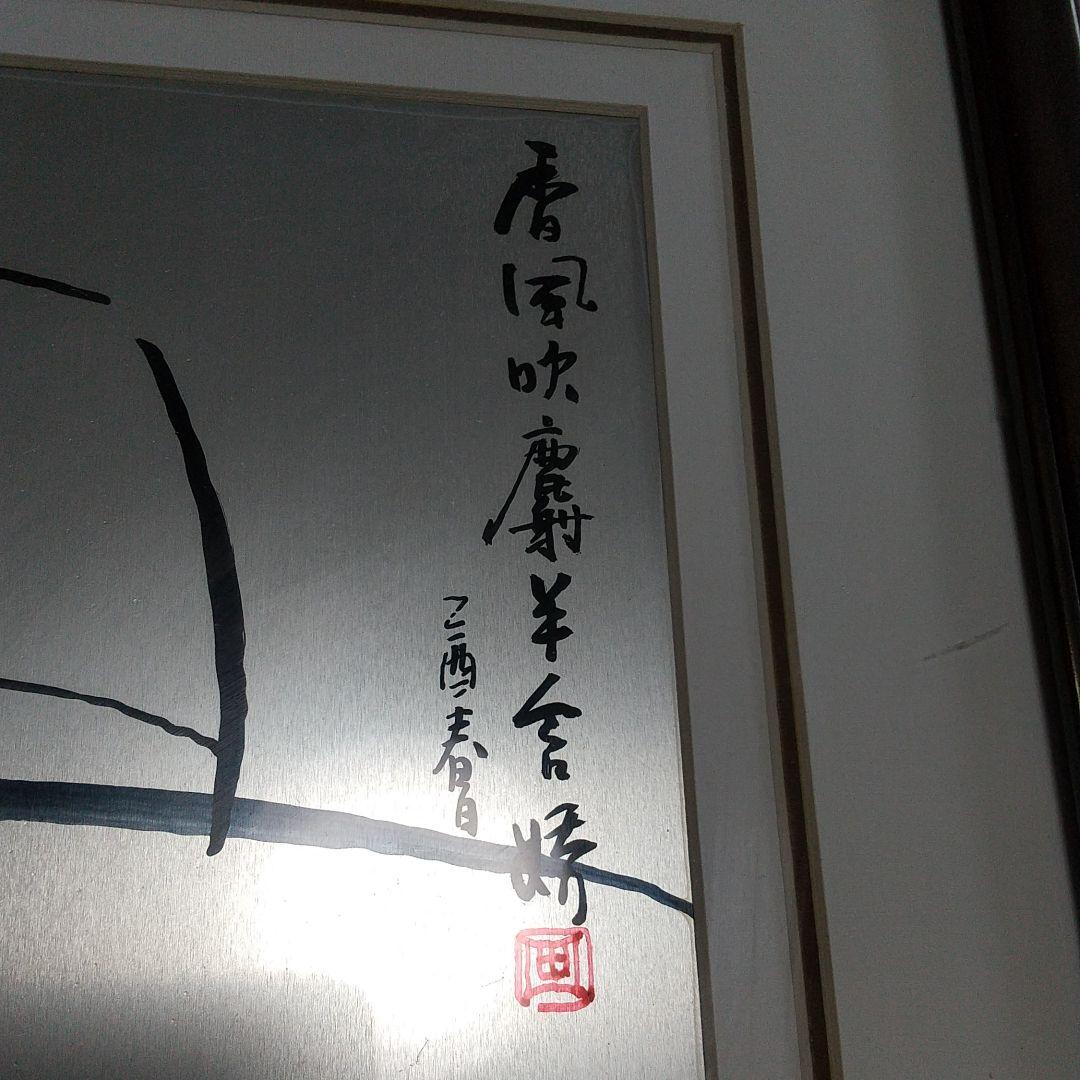 香風吹麝半含嬌
乙酉春日
画